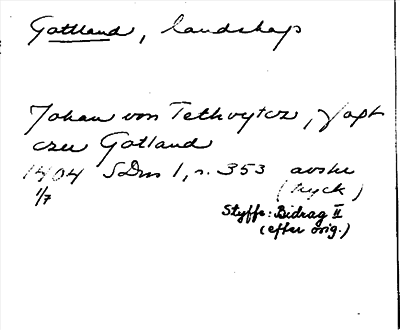 Gottland, landskap
Johan von Tethvytcz, Voget
czu Gotland
1404 SDns 1, n. 353 avskr
1/7 (tryck)
Styffe: Bidrag II
(efter orig.)